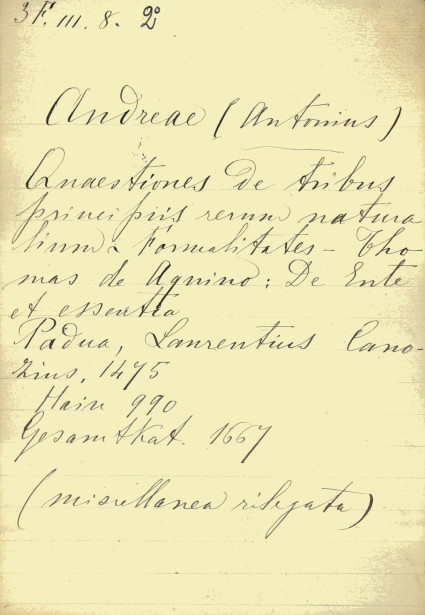 3 F. III. 8. 2º
Andreae (Antonius)
Quaestiones de tribus
principiis rerum natura
lium - Formalitates - Tho
mas de Aquino: De Ente
et essentia
Padua, Laurentius Cano-
zius, 1475
Hain 990
Gesamtkat. 1667
(miscellanea rilegata)